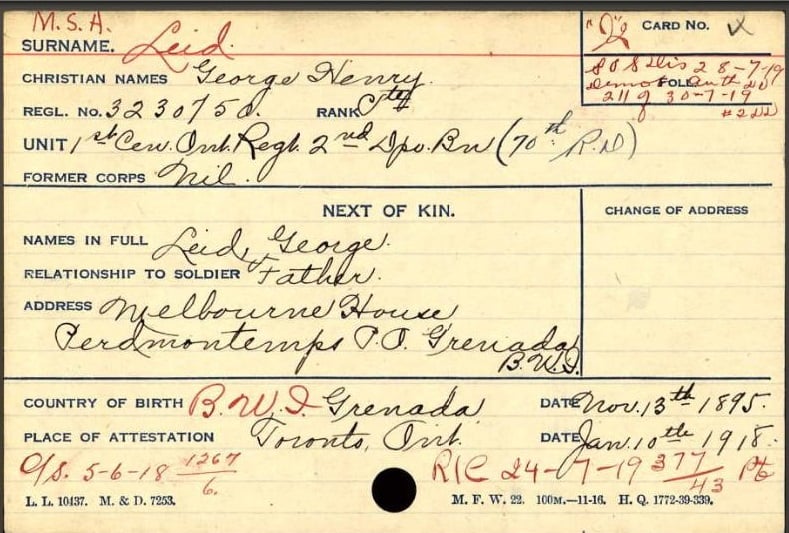 M.S.A.
"J2" CARD NO.
SURNAME. Leid.
CHRISTIAN NAMES George Henry.
S O S Dis 28-7-19
Demob FOLL. Auth DO
REGL. No. 3230750. RANK Pte
211 30-7-19
#2 DD
UNIT 1st Cen. Ont. Regt. 2nd Dpo. Bn (70th R.D)
FORMER CORPS Nil.
NEXT OF KIN.
CHANGE OF ADDRESS
NAMES IN FULL Leid, George.
RELATIONSHIP TO SOLDIER Father.
ADDRESS Melbourne House
Perdmontemps P.O. Grenada
B.W.I.
COUNTRY OF BIRTH B.W.I. Grenada DATE Nov. 13th 1895.
PLACE OF ATTESTATION Toronto, Ont. DATE Jan. 10th 1918.
O/S. 5-6-18 1267/6. R/C 24-7-19 377/43 Pte
L. L. 10437. M. & D. 7253. M. F. W. 22. 100M.—11-16. H. Q. 1772-39-339.